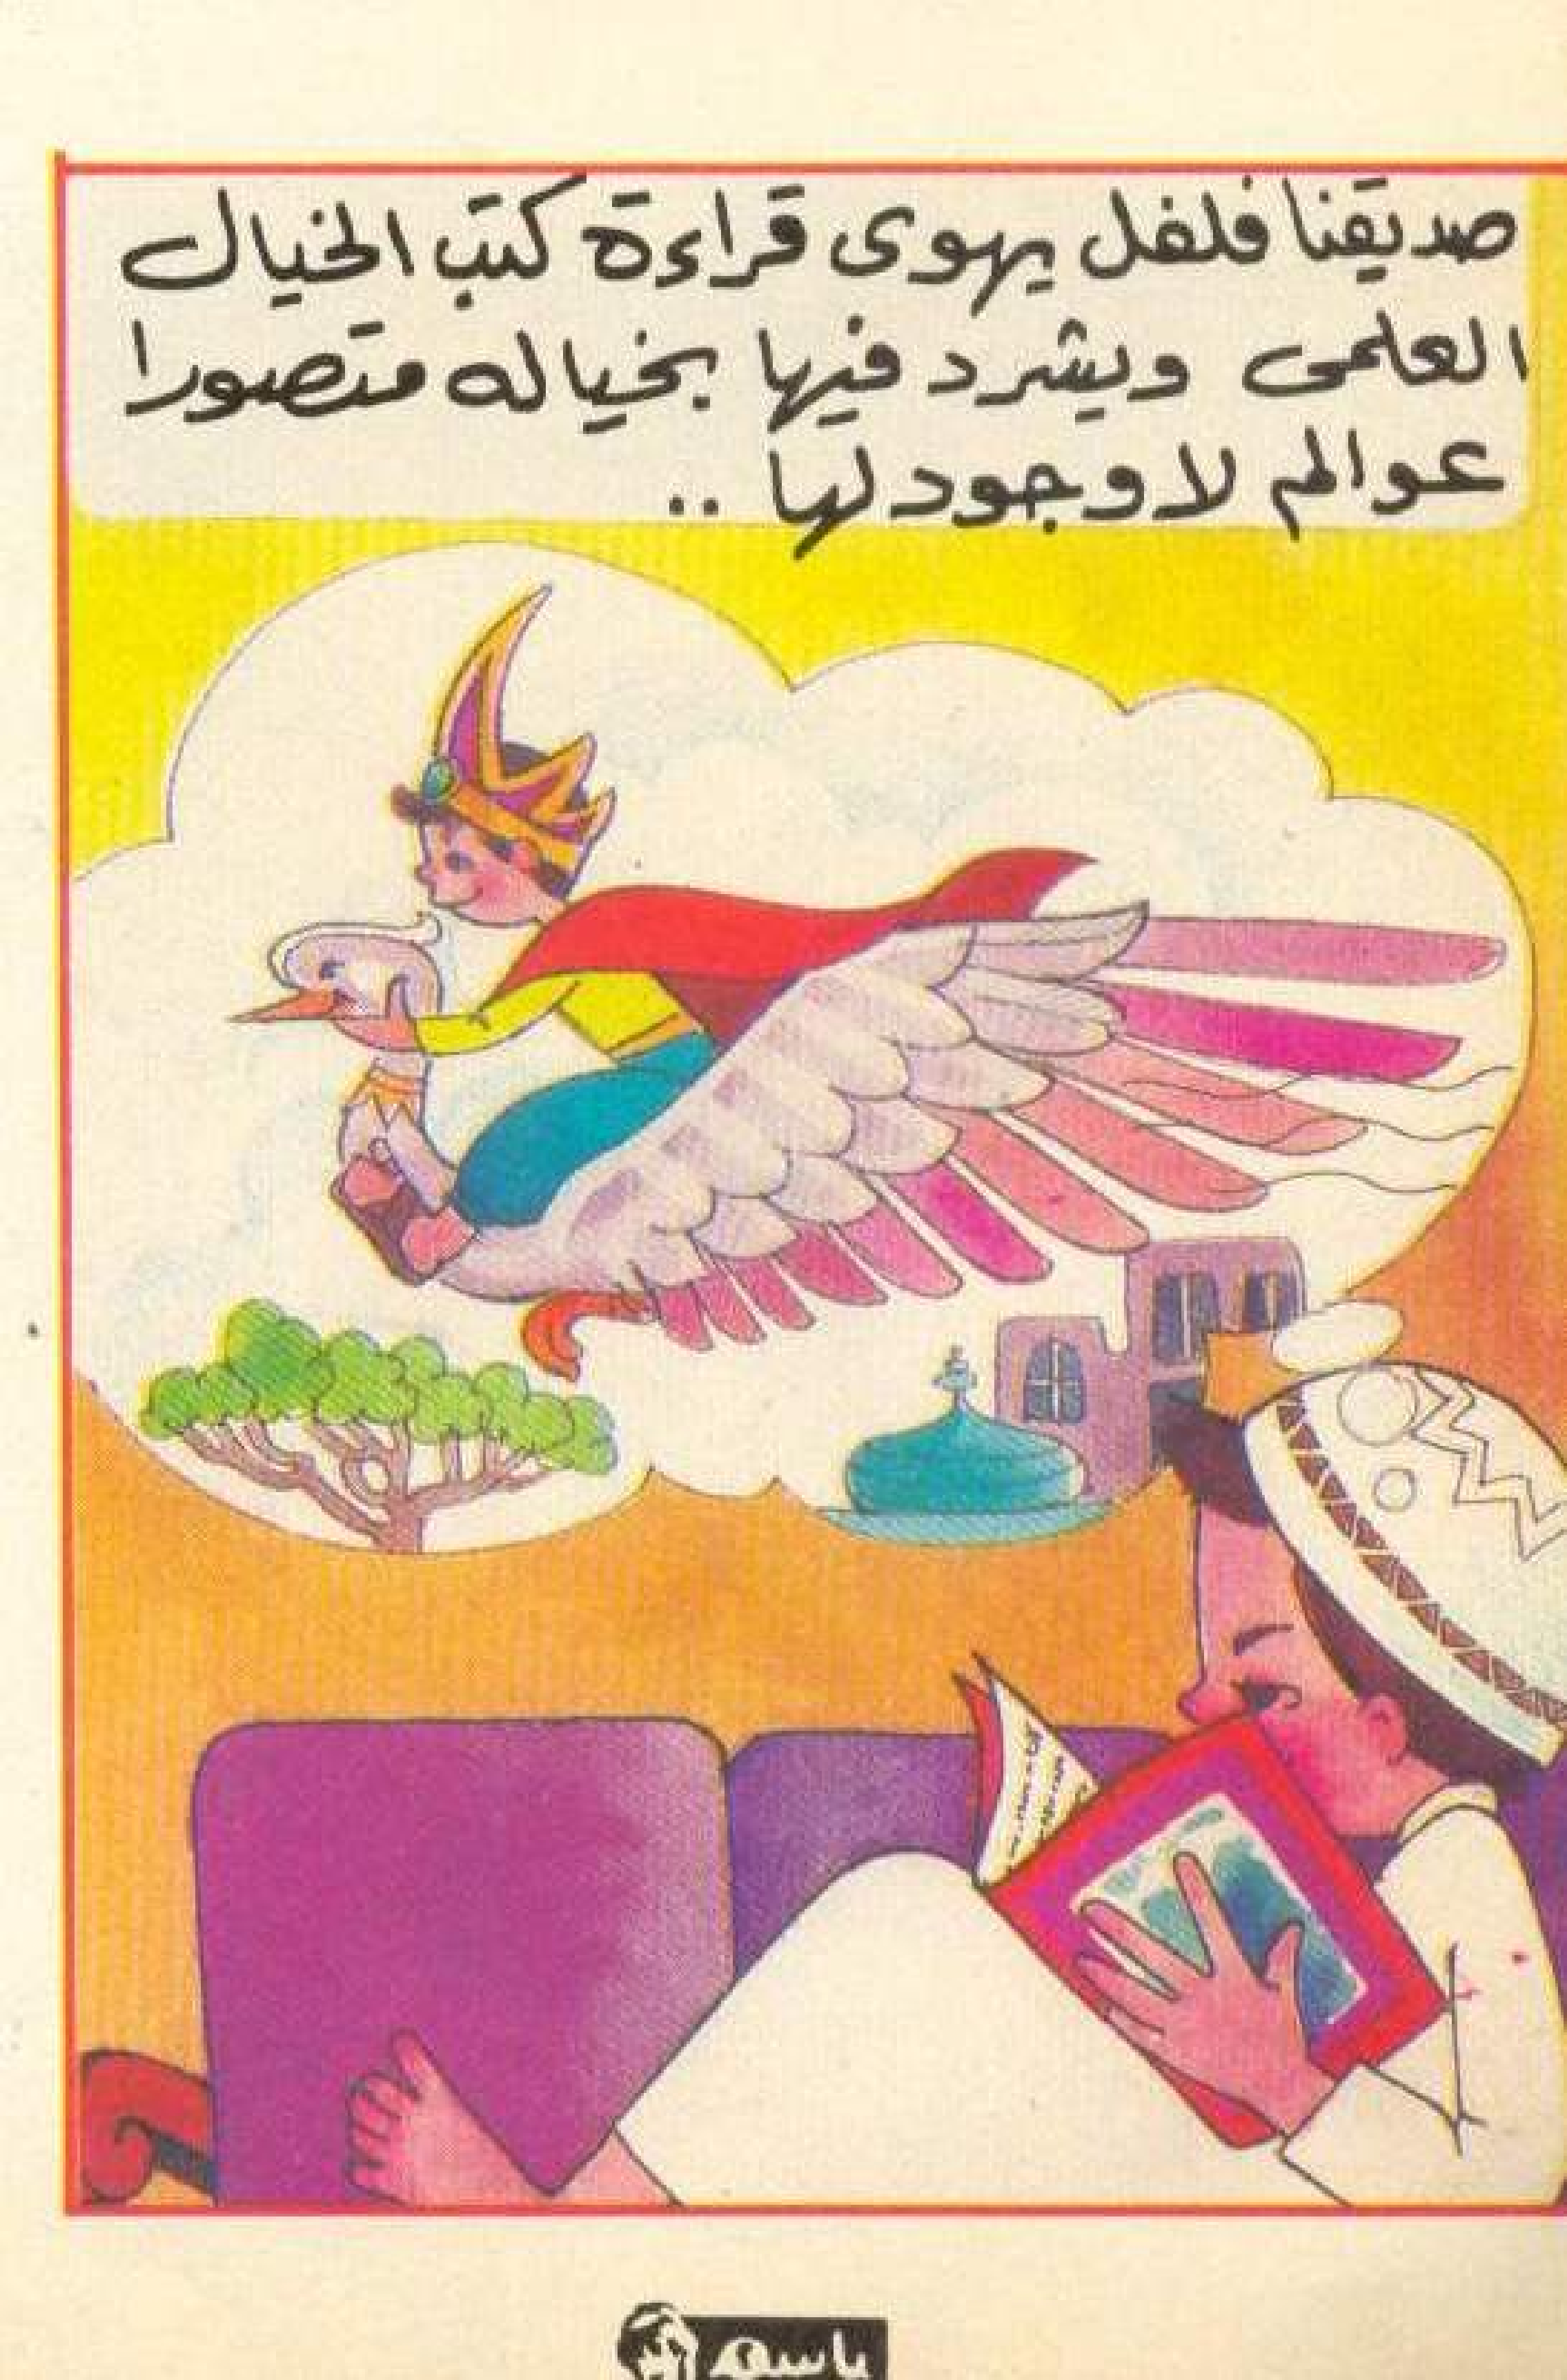 صديقنا فلفل يهوى قراءة كتب الخيال
العلمى ويشرد فيها بخياله متصورا
عوالم لا وجود لها ..
باسم